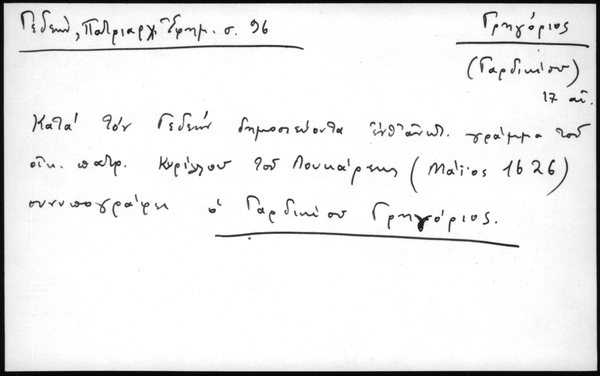 Γεδεών, Πατριαρχ. Ἐφημ. σ. 96
Γρηγόριος
(Γαρδικίου)
17 αἰ.
Κατά τόν Γεδεών δημοσιεύοντα ἐνθ' ἀνωτ. γράμμα τοῦ
οἰκ. πατρ. Κυρίλλου τοῦ Λουκάρεως (Μάϊος 1626)
συνυπογράφει ὁ Γαρδικίου Γρηγόριος.